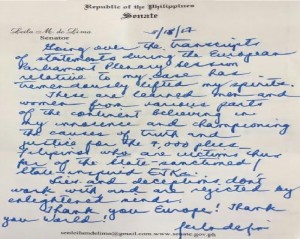 Republic of the Philippines
Senate
Leila M. de Lima
Senator
Going over the transcripts
of statements during the European
Parliament Plenary session
relative to my case has
tremendously lifted my spirits.
These are learned men and
women from various parts
of the continent believing in
my innocence and championing
the causes of truth and
justice for the 7,000 plus
Filipinos who are victims thus
far of the state sanctioned/
state inspired EJKs.
Lies and deceptions don't
work with and are rejected by
enlightened minds.
Thank you Europe! Thank
you World!
www.senate.gov.ph